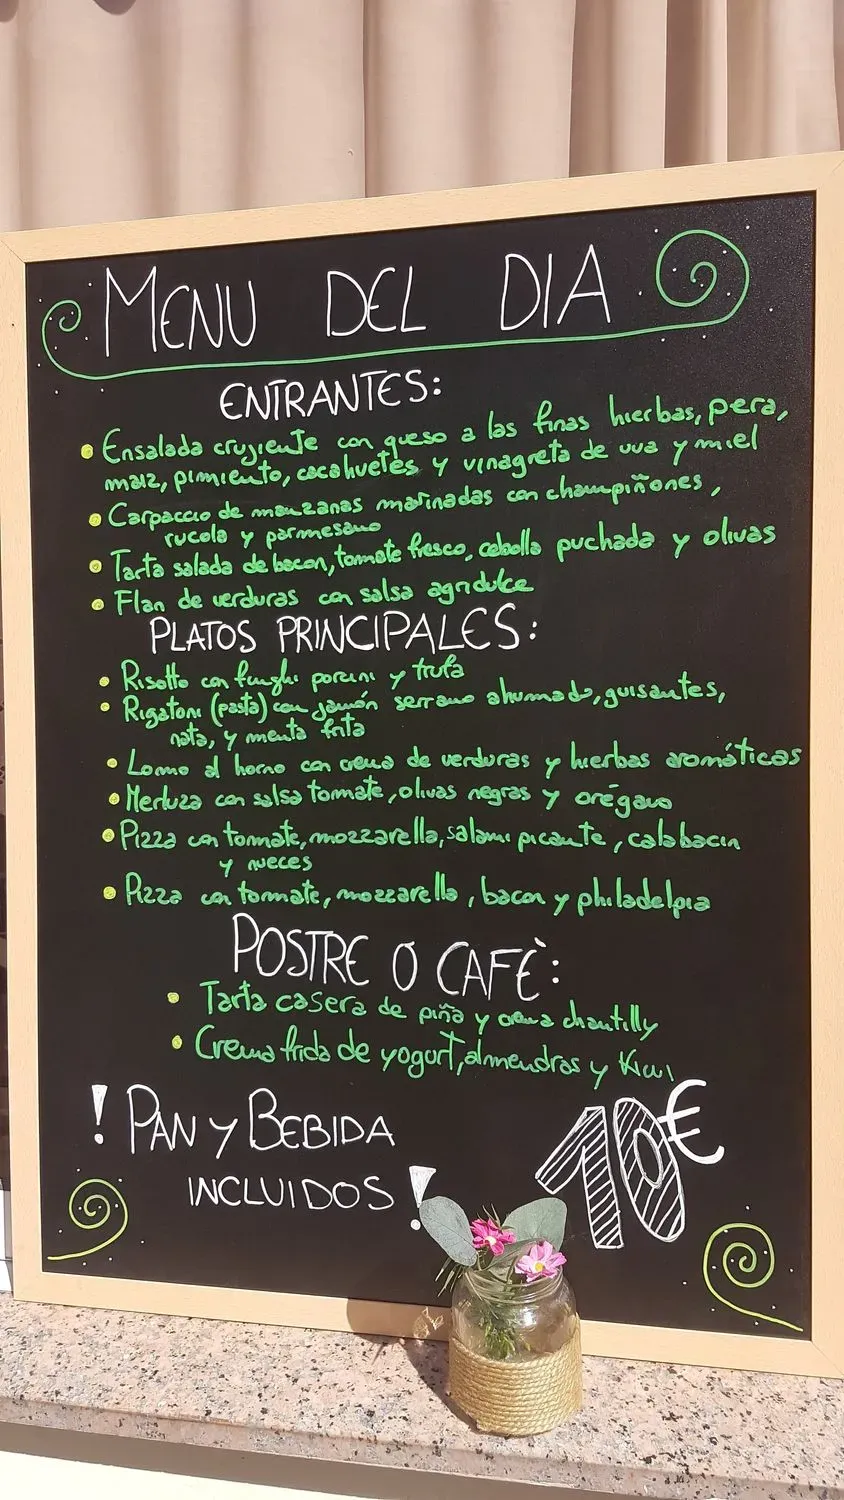 MENU DEL DIA
ENTRANTES:
Ensalada crujiente con queso a las finas hierbas, pera,
maiz, pimiento, cacahuetes y vinagreta de uva y miel
Carpaccio de manzanas marinadas con champiñones,
rucola y parmesano
Tarta salada de bacon, tomate fresco, cebolla puchada y olivas
Flan de verduras con salsa agridulce
PLATOS PRINCIPALES:
Risotto con funghi porcini y trufa
Rigatoni (pasta) con jamón serrano ahumado, guisantes,
nata, y menta frita
Lomo al horno con crema de verduras y hierbas aromáticas
Merluza con salsa tommate, olivas negras y orégano
Pizza con tommate, mozzarella, salami picante, calabacin
y nueces
Pizza con tommate, mozzarella, bacon y philadelpia
POSTRE O CAFÈ:
Tarta casera de piña y crema chantilly
Crema frida de yogurt, almendras y Kiwi
! PAN Y BEBIDA
INCLUIDOS !
10€